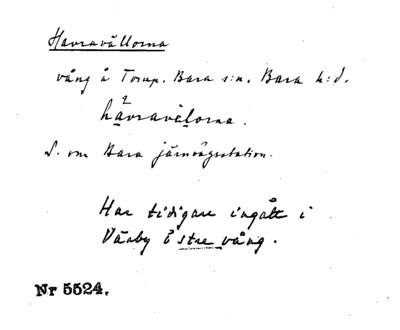 Havravällorna
vång å Torup. Bara s:n. Bara h:d.
hávraväłorna.
S. om Bara järnvägsstation.
Har tidigare ingått i
Värby östre vång.
Nr 5524.